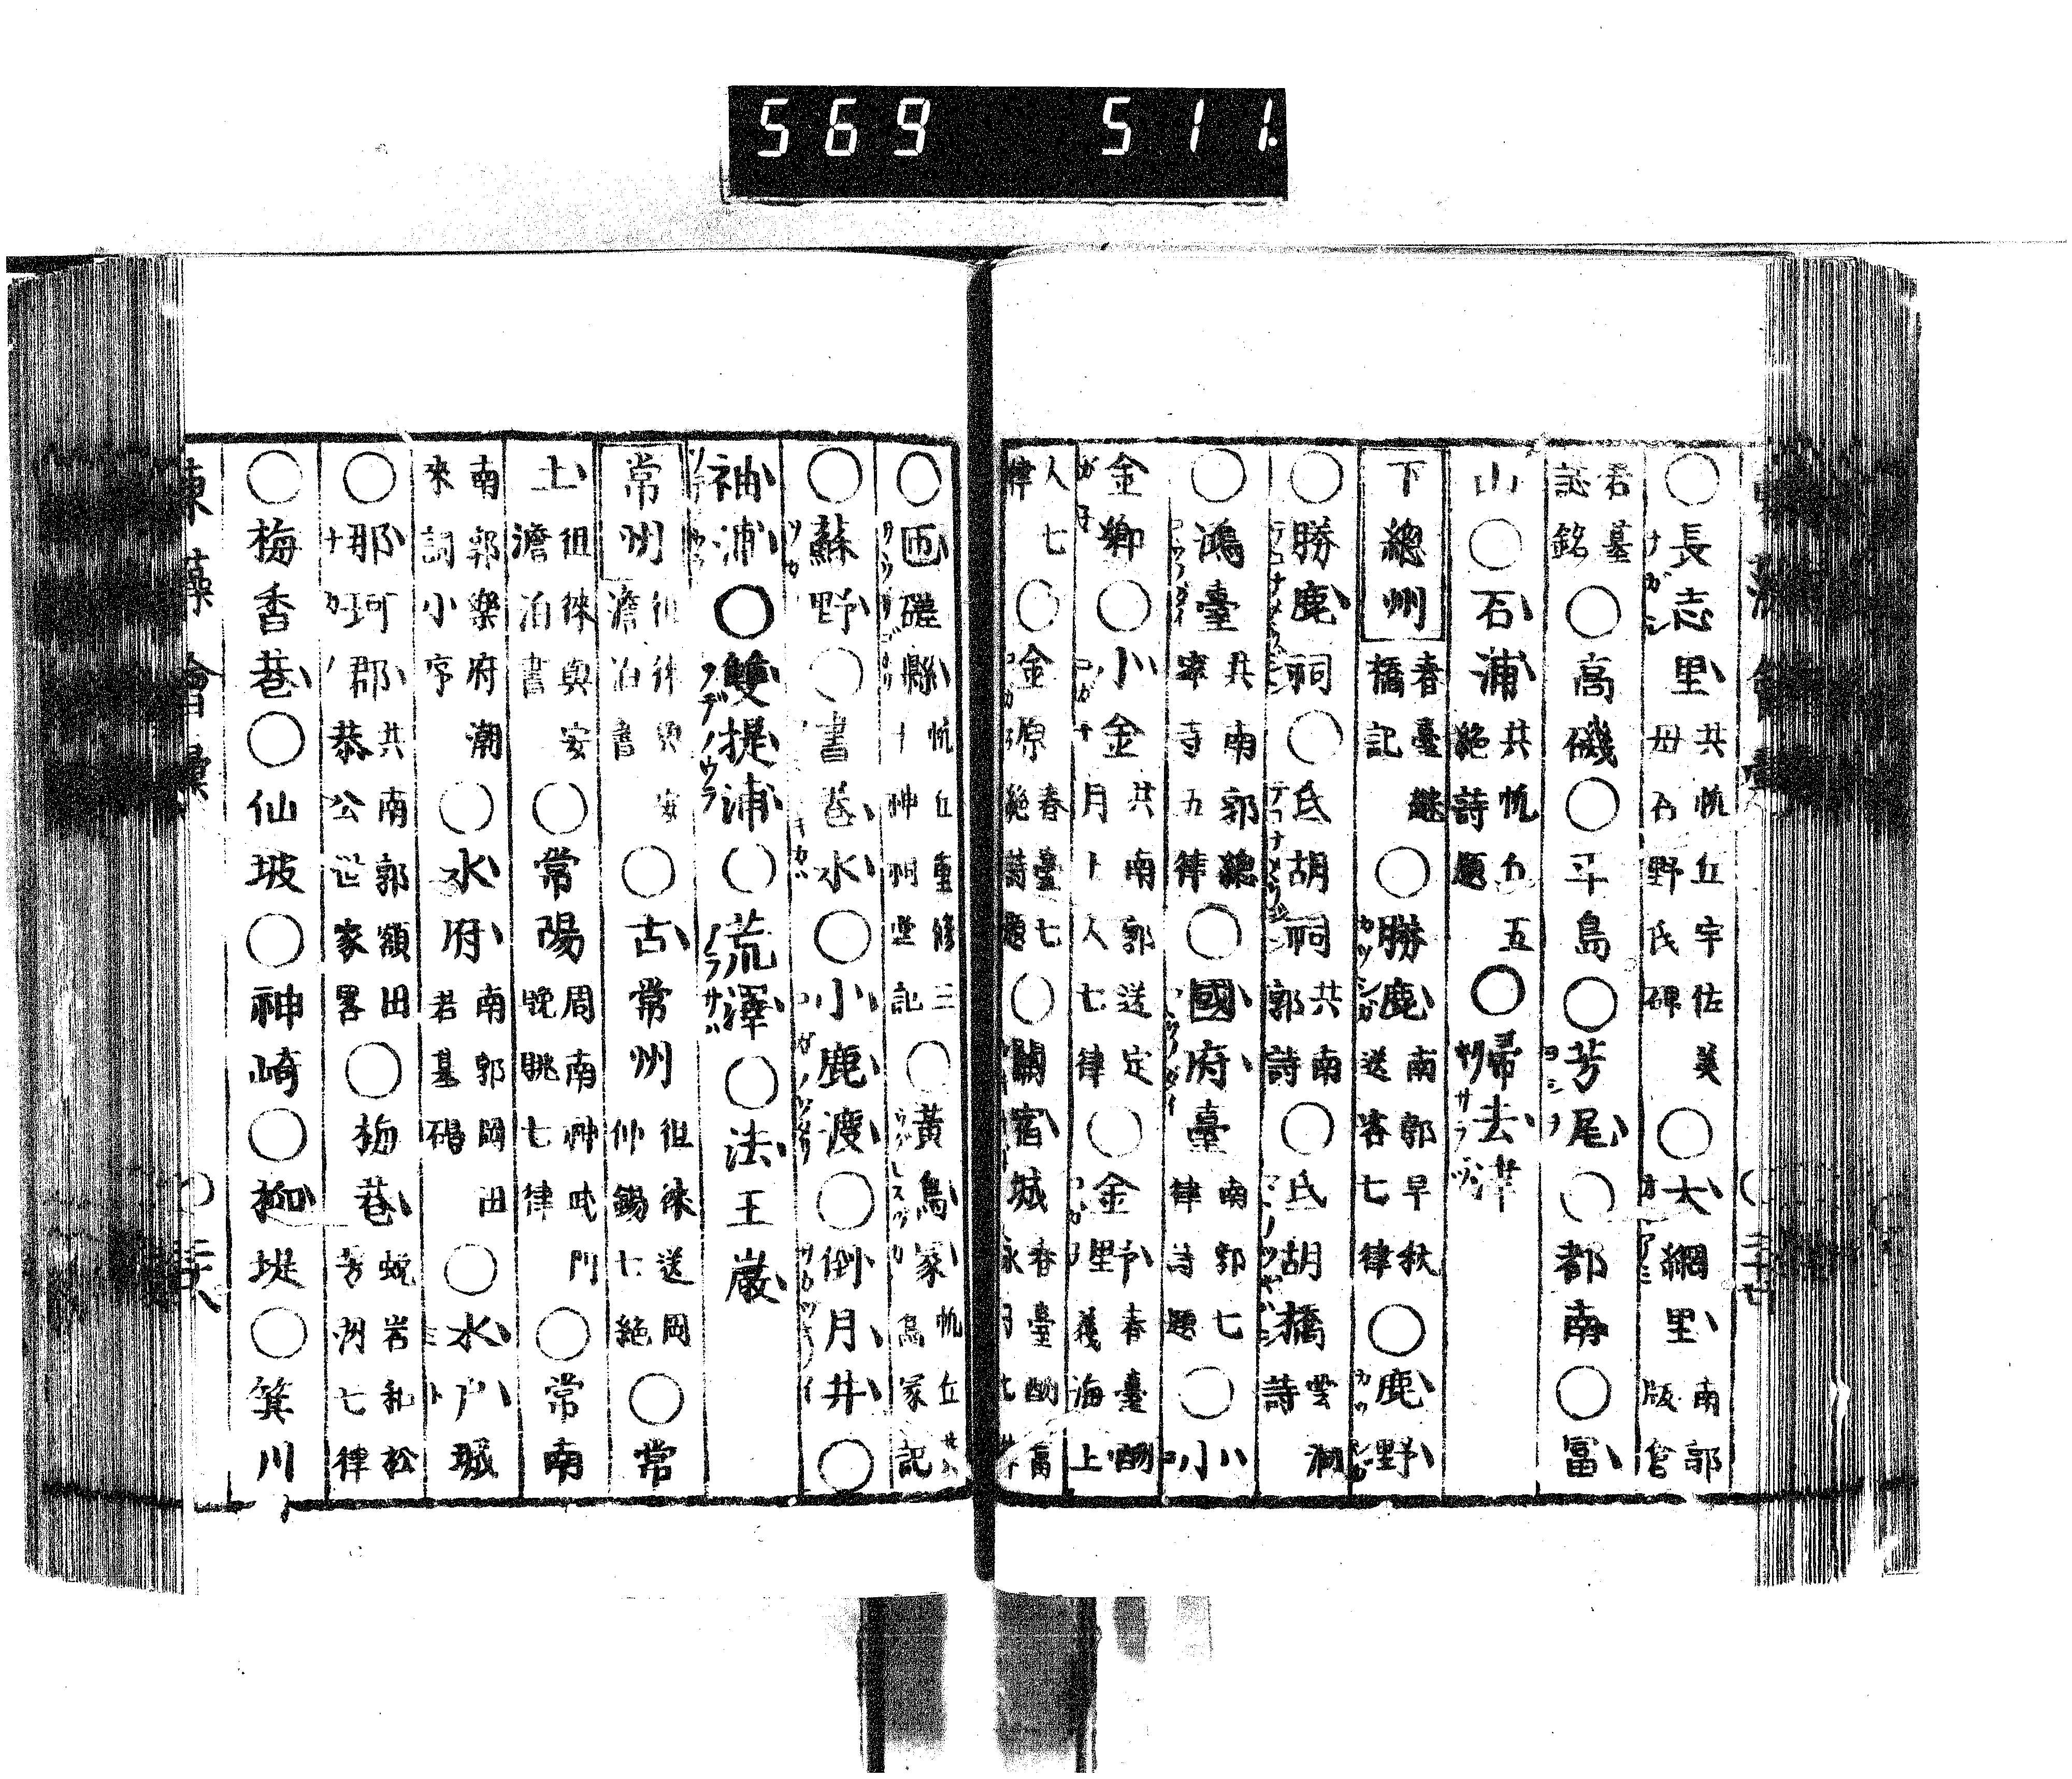 569 511
○長志里共帆丘宇佐美毋石野氏碑○大網里南郭版倉
君墓墓誌銘○高磯○平島○芳尾○都南○冨
山○石浦共帆丘五絶詩題○歸去津
下總州春臺継橋記○勝鹿南郭早秋送客七律○鹿野
○勝鹿祠○氏胡祠共南郭詩○氏胡橋雲洞詩
○鴻臺共南郭總寧寺五律○國府臺南郭七律詩題○小
金鄉○小金共南郭送定月上人七律○金野里春臺酬義海上
人七律○金原春臺七絶詩題○關宿城春臺酬
○匝礒縣帆丘重修三十神祠堂記○黃鳥冢帆丘鳥冢記
○蘇野○書巻水○小鹿渡○倒月井○
袖浦○雙提浦○荒澤○法王巌
常州徂徠與安澹泊書○古常州徂徠送岡仲錫七絶○常
土徂徠與安澹泊書○常陽周南神武門晚眺七律○常南
南郭樂府潮來詞小序○水府南郭岡田君墓碣○水戸城
○那珂郡共南郭額田恭公世家畧○梅巷蛻岩和松芳洲七律
○梅香巷○仙坡○神崎○柳堤○箕川